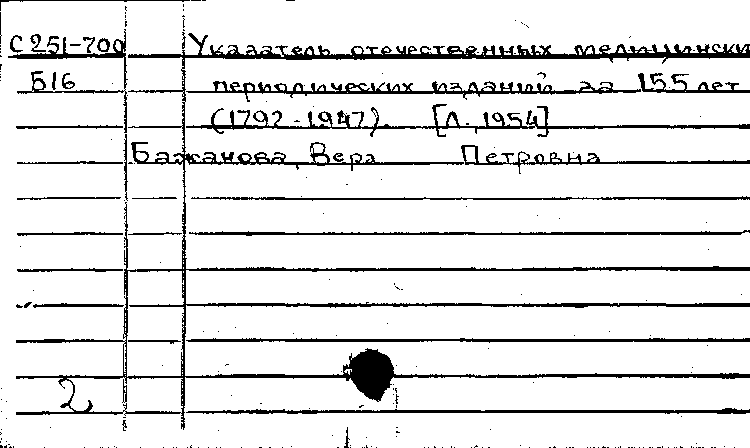 С251-700 Указатель отечественных медицински
Б16 периодических изданий за 155 лет
(1792-1947). [Л., 1954]
Бажанова, Вера Петровна
2